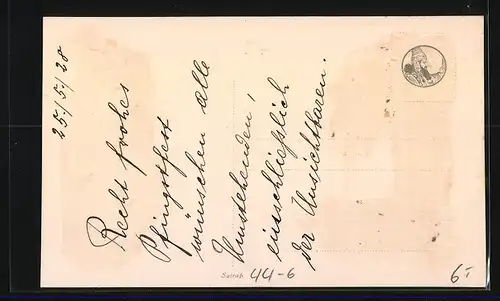 25./5./28
Recht frohes
Pfingstfest
wünschen alle
Umstehenden,
einschließlich
der Unsichtbaren.
44-6
6.-